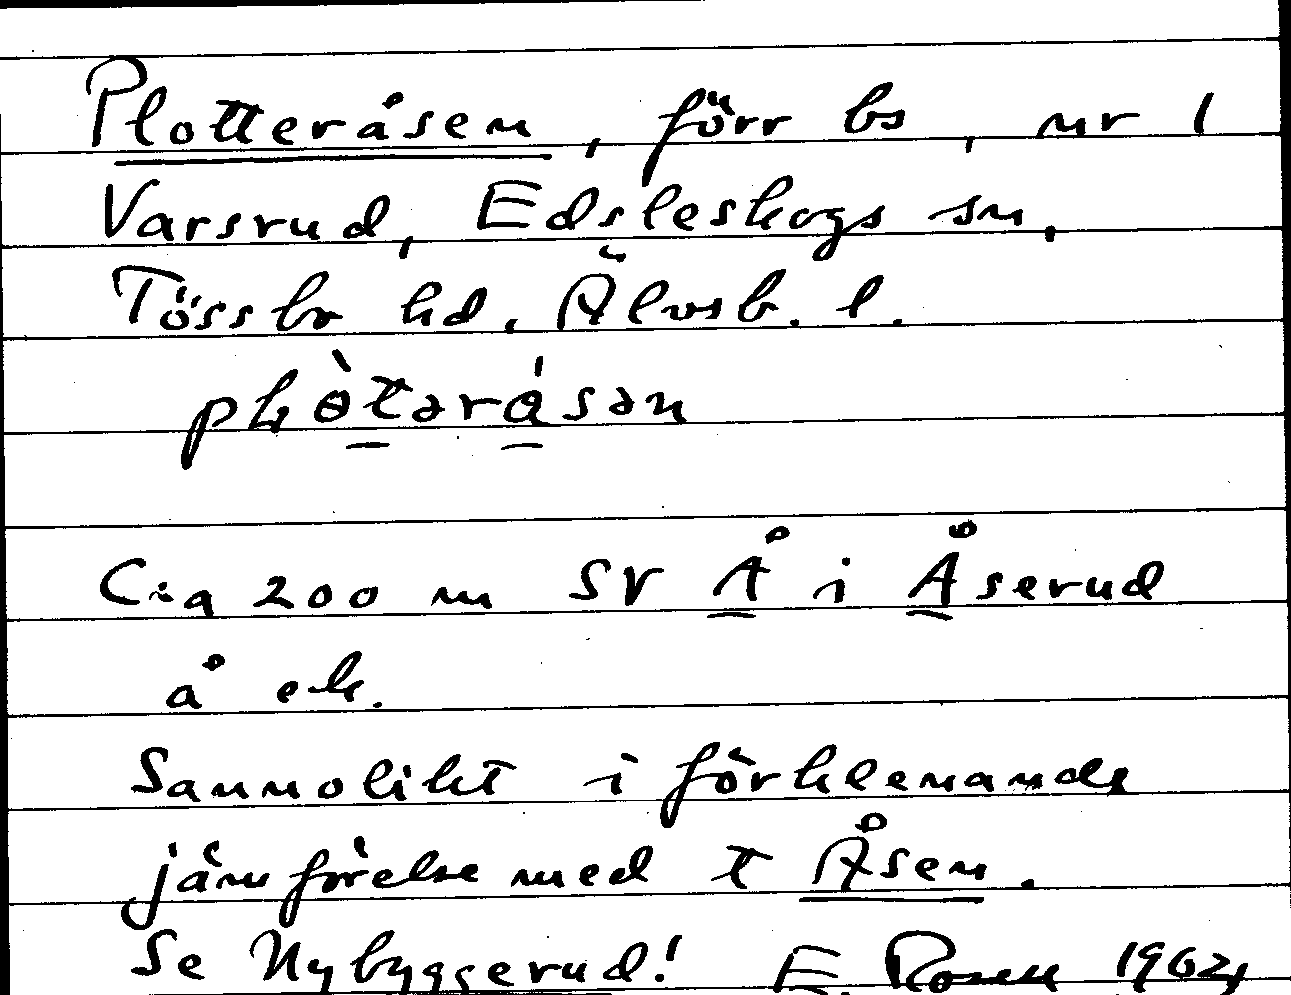 Plotteråsen, förr bs, nr 1
Varsrud, Edsleskogs sn,
Tössbo hd. Älvsb. l.
C:a 200 m SV Å i Åserud
å ek.
Sannolikt i förklenande
jämförelse med t Åsen.
Se Nybyggerud! E. Rosell 1962